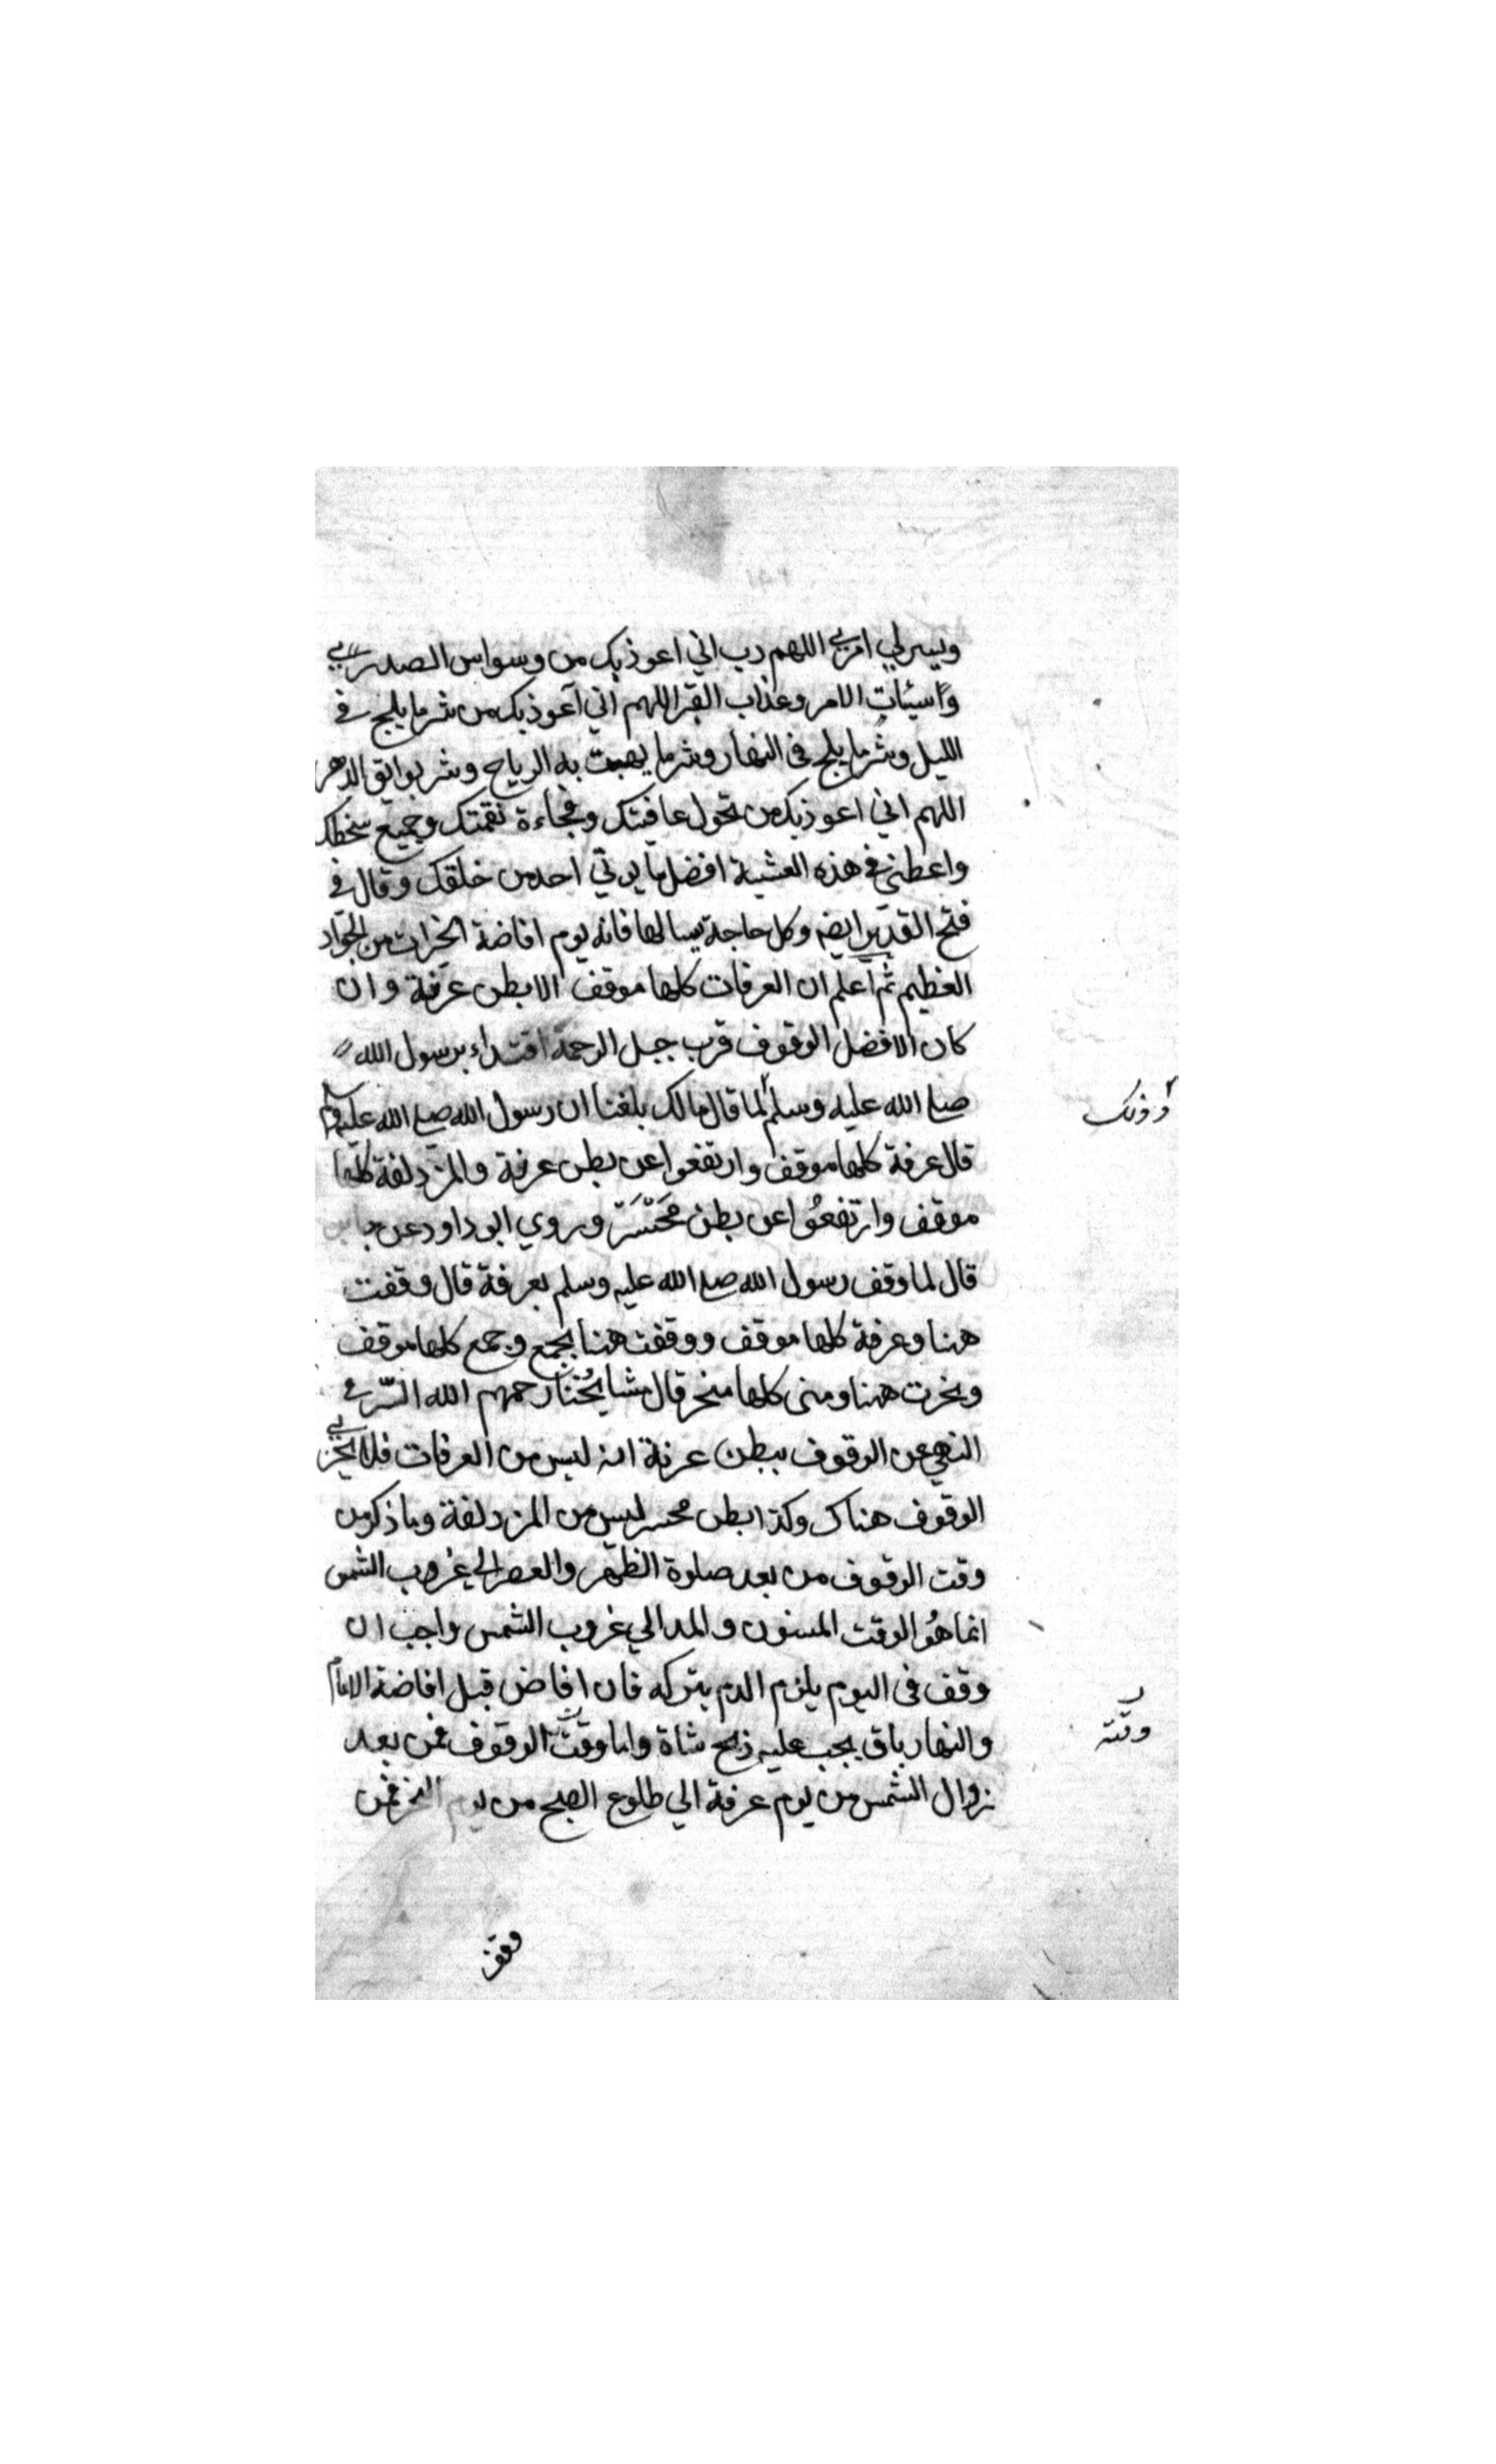 ويسرلي امري اللهم رب اني اعوذبك من وسواس الصدر
وسيئات الامر وعذاب القبر اللهم اني اعوذبك من شر ما يلج في
الليل وشر ما يلج في النهار وشر ما يهبت به الرياح وشر بوائق الدهر
اللهم اني اعوذبك من تحول عافيتك وفجاءة نقمتك وجميع سخطك
واعطني في هذه العشية افضل ما يوتي احد من خلقك وقال في
فتح القدير ايضه وكل حاجة يسالها فانه يوم افاضة الخيرات من الجواد
العظيم ثم اعلم ان العرفات كلها موقف الا بطن عرنة وان
كان الافضل الوقوف قرب جبل الرحمة اقتداء برسول الله
صلى الله عليه وسلم لما قال مالك بلغنا ان رسول الله صلى الله عليه وسلم
وذلك
قال عرفة كلها موقف وارتفعوا عن بطن عرنة والمزدلفة كلها
موقف وارتفعوا عن بطن محسر وروي ابو داود عن جابر
قال لما وقف رسول الله صلى الله عليه وسلم بعرفة قال وقفت
ههنا وعرفة كلها موقف ووقفت ههنا بجمع وجمع كلها موقف
ونحرت ههنا ومنى كلها منحر قال مشايخنا رحمهم الله السّر في
النهي عن الوقوف ببطن عرنة انه ليس من العرفات فلا يجزي
الوقوف هناك وكذا بطن محسر ليس من المزدلفة وما ذكر من
وقت الوقوف من بعد صلوة الظهر والعصر الي غروب الشمس
انما هو الوقت المسنون والمد الي غروب الشمس واجب ان
وقف في اليوم يلزم الدم بتركه فان افاض قبل افاضة الامام
والنهار باق يجب عليه ذبح شاة واما وقت الوقوف فمن بعد
وقته
زوال الشمس من يوم عرفة الي طلوع الصبح من يوم النحر فمن
وقف